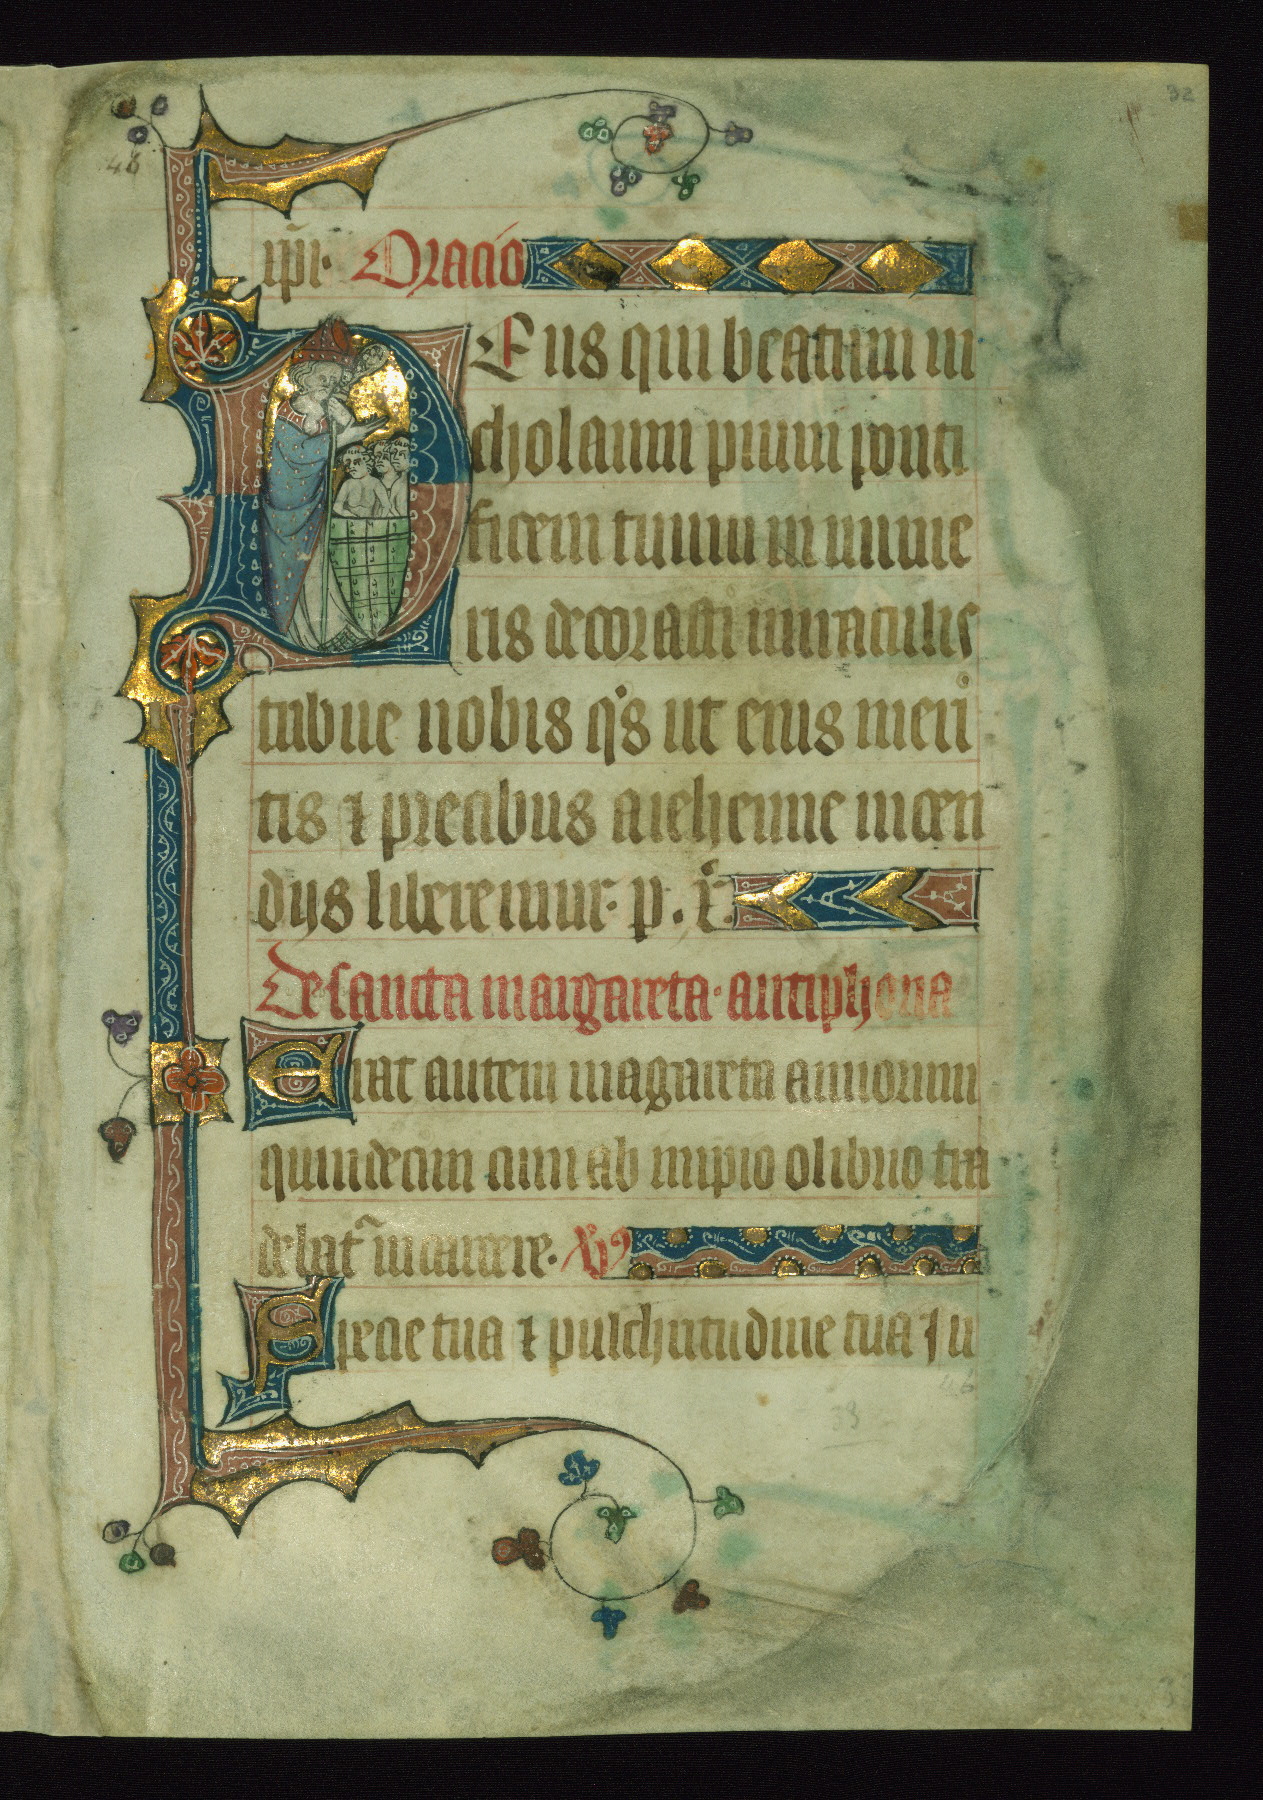 xp̄i. Oracio
Deus qui beatum ni
cholaum pium ponti
ficem tuum innume
ris decorasti miraculis
tribue nobis q's ut eius meri
tis ⁊ precibus a iehenne incen
dijs liberemur. p. x.
De sancta margareta. antiphona
Erat autem magareta annorum
quindecim cum ab impio olibrio tra
debat᷑ in carcere.
Specie tua ⁊ pulchritudine tua
32
48
33
46